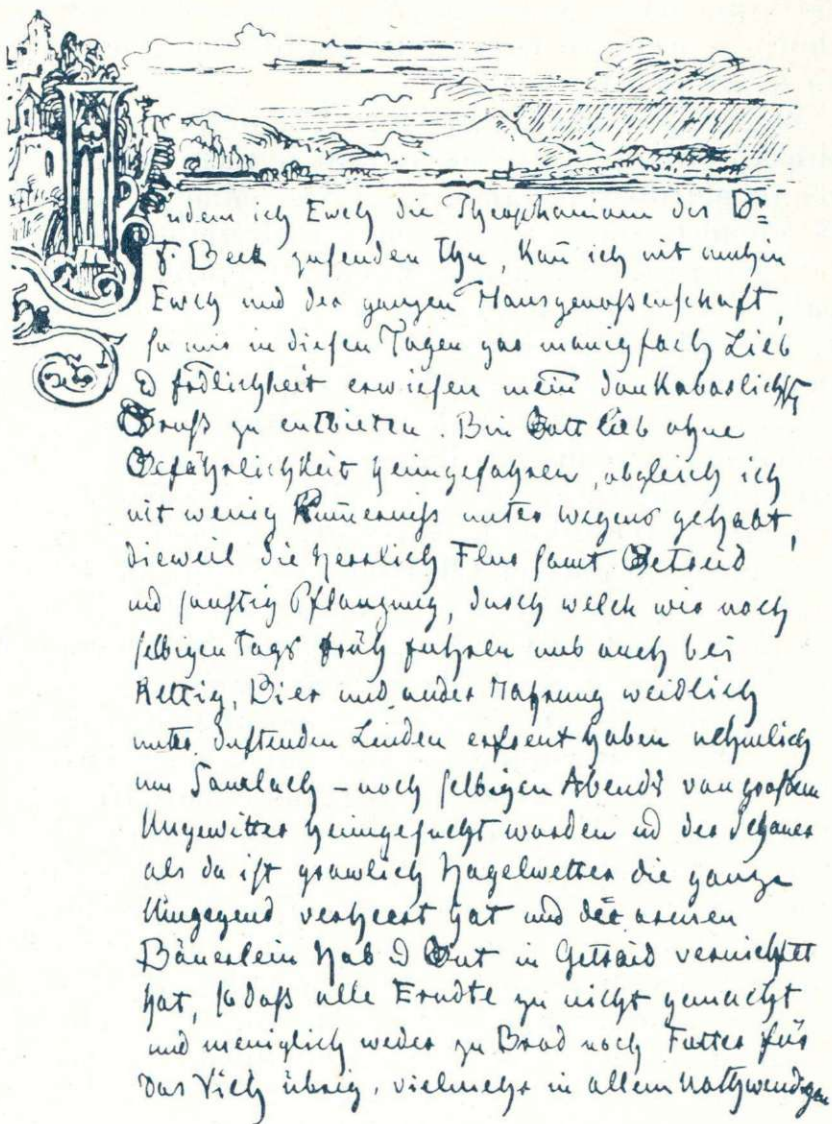 Indem ich Ewch die Theophaniam des Dr
F. Beck zusenden thu, kañ ich nit umhin
Ewch und der ganzen Hausgenoßenschaft,
so mir in diesen Tagen gar manigfach Lieb
& frölichkeit erwiesen mein dankbarlichst
Gruß zu entbieten. Bin Gott lieb ohne
Gefährlichkeit heimgefahren, obgleich ich
nit wenig Kümerniß unter wegens gehabt,
dieweil die herrlich Flur samt Getreid
und sunstig Pflanzung, durch welch wir noch
selbigen Tags früh fuhren und auch bei
Rettig, Bier und ander Nahrung weidlich
unter duftenden Linden erfreut haben nehmlich
um Sauerlach – noch selbigen Abends von großem
Ungewitter heimgesucht worden und der Schauer
als da ist grawlich Hagelwetter die ganze
Umgegend verheert hat und der armen
Bäuerlein Hab & Gut in Getraid vernichtet
hat, so daß alle Erndte zu nicht gemacht
und meniglich weder zu Brod noch Futter für
das Vieh übrig, vielmehr in allem Nothwendigen